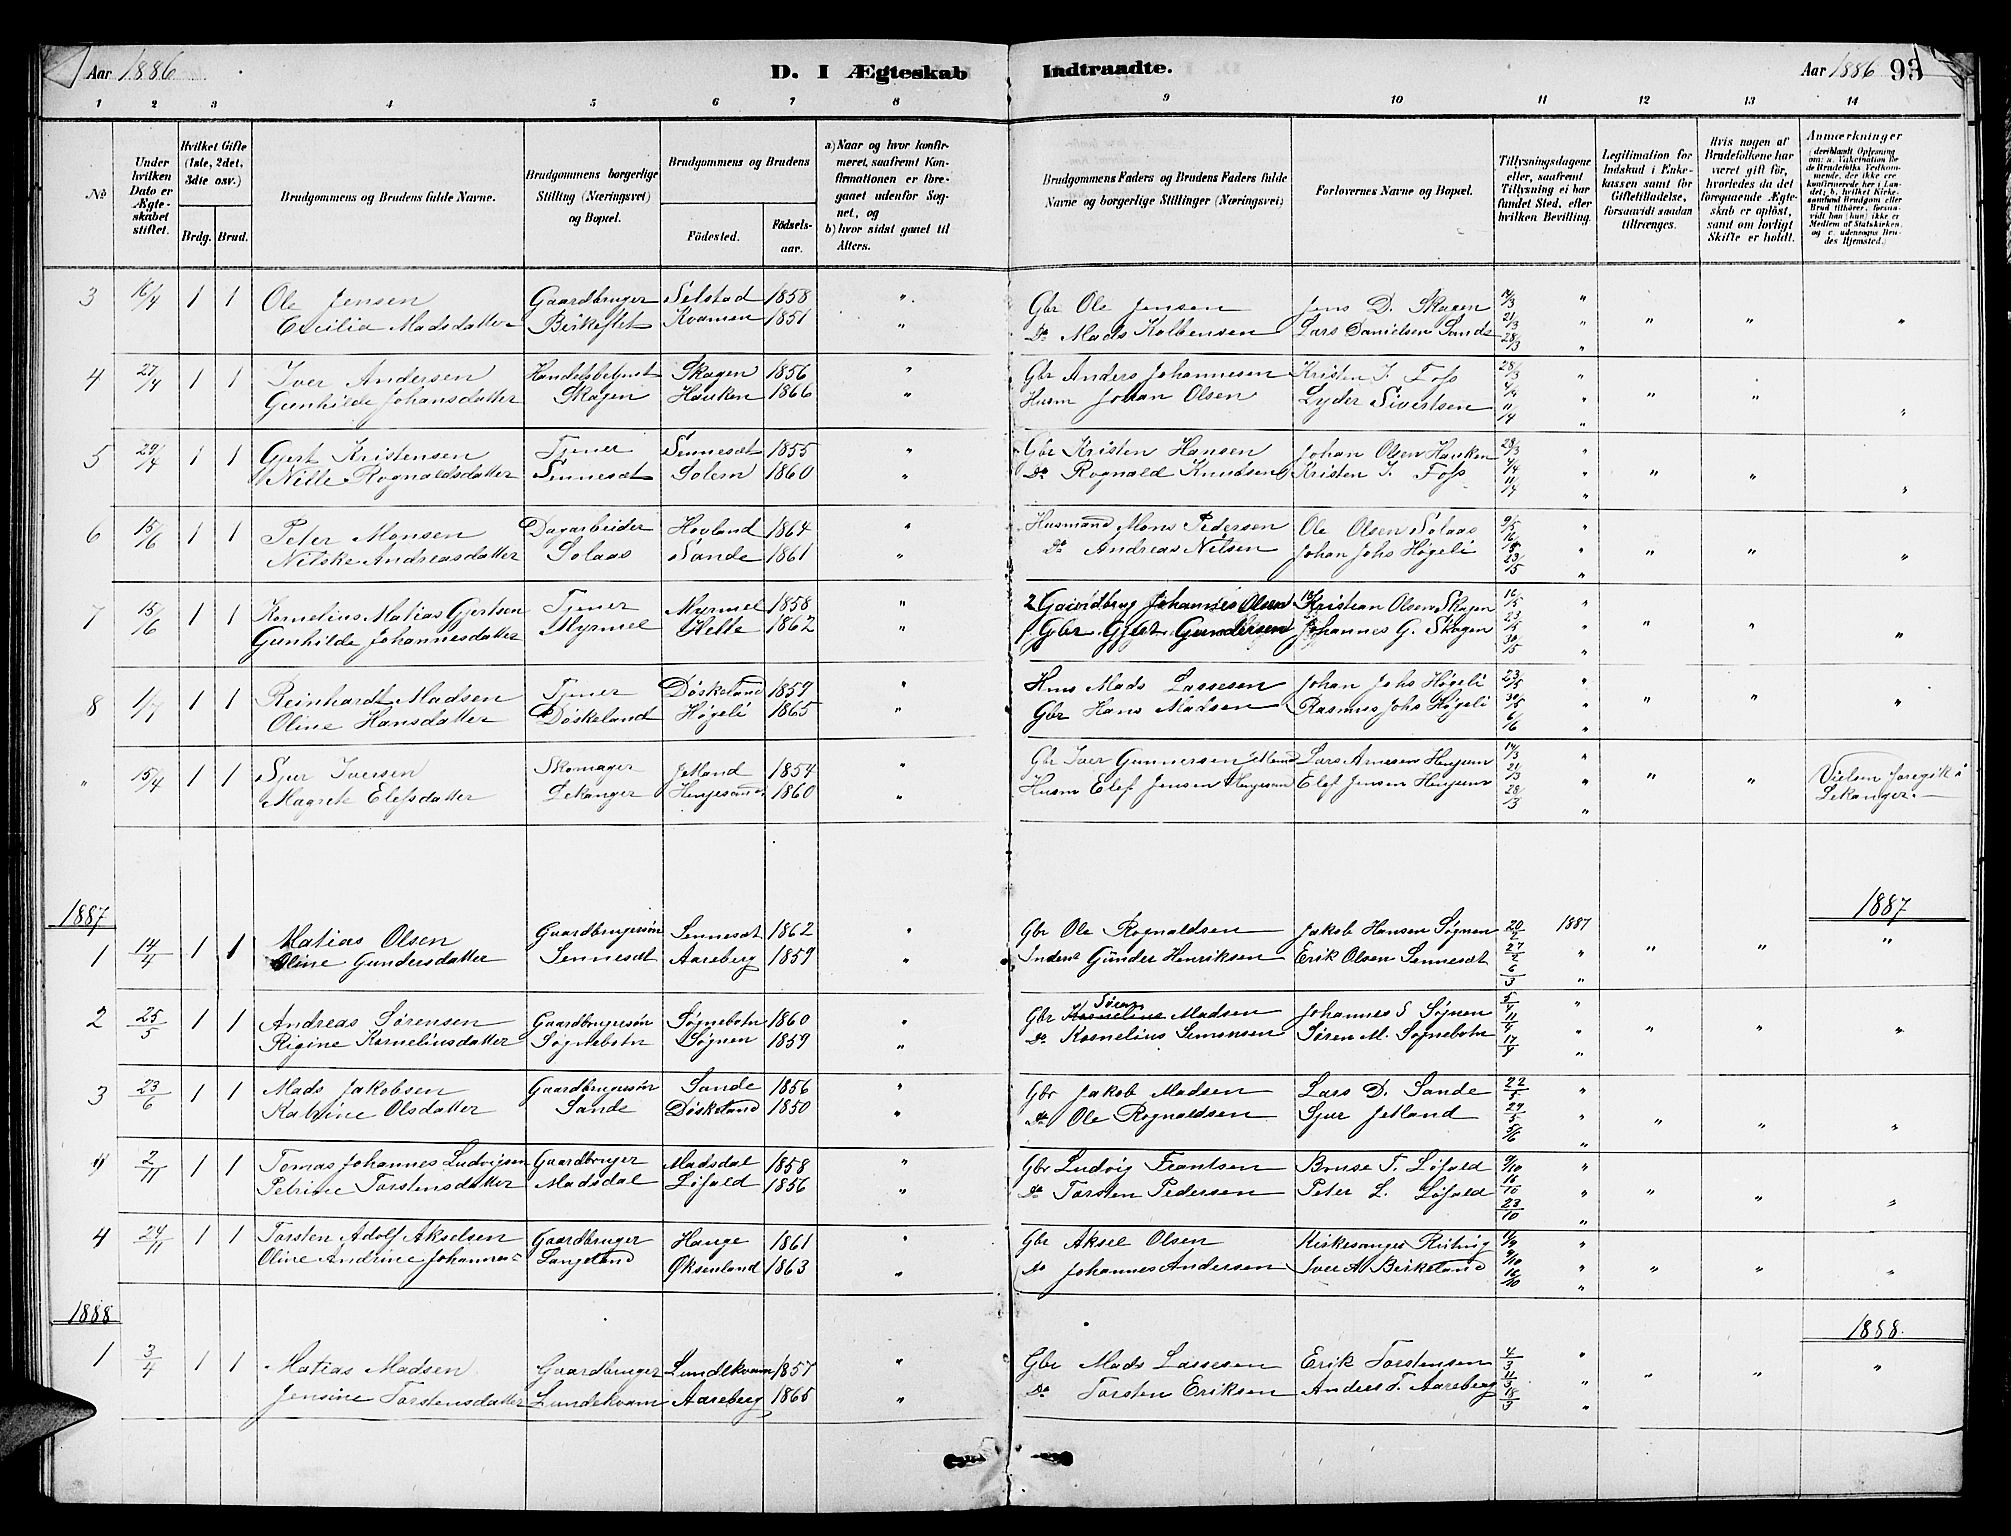 Aar 1886
D. I Ægteskab Indtraadte.
Aar 1886 93
1 2 3 4 5 6 7 8 9 10 11 12 13 14
No.
Under hvilken Dato er Ægteskabet stiftet.
Hvilket Gifte (1ste, 2det, 3die osv.)
Brdg. Brud.
Brudgommens og Brudens fulde Navne.
Brudgommens borgerlige Stilling (Næringsvei) og Bopæl.
Brudgommens og Brudens
Fødested. Fødselsaar.
a) Naar og hvor konfirmeret, saafremt Konfirmationen er foregaaet udenfor Sognet, og
b) hvor sidst gaaet til Alters.
Brudgommens Faders og Brudens Faders fulde Navne og borgerlige Stillinger (Næringsvei)
Forlovernes Navne og Bopæl.
Tillysningsdagene eller, saafremt Tillysning ei har fundet Sted, efter hvilken Bevilling.
Legitimation for Indskud i Enkekassen samt for Giftetilladelse, forsaavidt saadan tiltrænges.
Hvis nogen af Brudefolkene har været gift før, hvorledes da det foregaaende Ægteskab er opløst, samt om lovligt Skifte er holdt.
Anmærkninger
3 16/4 1 1 Ole Jensen Gaardbruger Selstad 1858 " Gbr Ole Jensen Jens D. Skagen 14/3 "
Cecilia Madsdatter Birkeflet Kvamen 1851 " Do Mads Kolbensen Lars Danielsen Sande 21/3 28/3 " " " "
4 27/4 1 1 Iver Andersen Handelsbetjent Skagen 1856 " Gbr Anders Johannesen Kristen J. Foss 28/3 "
Gunhilde Johansdatter Skagen Hauken 1866 " Husm Johan Olsen Lyder Sivertsen 4/4 11/4 " " " "
5 29/4 1 1 Gert Kristensen Tjener Sennesæt 1855 " Gbr Kristen Hansen Johan Olsen Hauken 28/3 "
Nille Rognaldsdatter Sennesæt Solem 1860 " Do Rognald Knudsen Kristen J. Foss 4/4 11/4 " " " "
6 15/6 1 1 Peter Monsen Dagarbeider Hovland 1864 " Husmand Mons Pedersen Ole Olsen Solaas 9/5 "
Nilske Andreasdatter Solaas Sande 1861 " Do Andreas Nilsen Johan Johs Høgeli 16/5 23/5 " " " "
7 15/6 1 1 Kornelius Matias Gjertsen Tjener Myrmel 1858 " 2 Johannes Olsen Kristian Olsen Skagen 16/5 "
Gunhilde Johannesdatter Myrmel Helle 1862 " 1 Gbr Gjert Gundersen Johannes G. Skagen 23/5 30/5 " " " "
8 1/7 1 1 Reinhardt Madsen Tjener Døskeland 1859 " Hus Mads Lassesen Johan Johs Høgeli 23/5 "
Oline Hansdatter Døskeland Høgeli 1865 " Gbr Hans Madsen Rasmus Johs Høgeli 30/5 6/6 " " " "
" 15/4 1 1 Sjur Iversen Skomager Jetland 1854 " Gbr Iver Gunnersen Lars Arnesen Henjum 14/3 "
Magrete Elefsdatter Lekanger Henjesand 1860 " Husm Elef Jensen Henjesand Elef Jensen Henjum 21/3 28/3 " " " Vielsen foregik i Lekanger.
1887 1887
1 14/4 1 1 Matias Olsen Gaardbrugersøn Sennesæt 1862 " Gbr Ole Rognaldsen Jakob Hansen Søgnen 20/2 1887
Oline Gundersdatter Sennesæt Aareberg 1859 " Inderst Günder Henriksen Erik Olsen Sennesæt 27/2 6/3 " " " "
2 25/5 1 1 Andreas Sørensen Gaardbrugersøn Søgnebotn 1860 " Gbr Søren Madsen Johannes S Søgnen 5/4 "
Rigine Kornelinsdatter Søgnebotn Søgnen 1859 " Do Kornelius Simonsen Søren M. Sognebotn 11/4 17/4 " " " "
3 23/6 1 1 Mads Jakobsen Gaardbrugersøn Sande 1856 " Gbr Jakob Madsen Lars D. Sande 22/5 "
Katrine Olsdatter Sande Døskeland 1850 " Do Ole Rognaldsen Sjur Jetland 29/5 5/6 " " " "
4 2/11 1 1 Tomas Johannes Ludvigsen Gaardbruger Madsdal 1858 " Gbr Ludvig Frantsen Bruse T. Løfald 9/10 "
Petrine Torstensdatter Madsdal Løfald 1856 " Do Torsten Pedersen Peter L. Løfald 16/10 23/10 " " " "
4 24/11 1 1 Torsten Adolf Akselsen Gaardbruger Hauge 1861 " Gbr Aksel Olsen Kirkesanger 11/9 "
Oline Andrine Johannes= Langeland Øksenland 1863 " Do Johannes Andersen Iver A Birkeland 9/10 16/10 " " " "
1888 1888.
1 3/4 1 1 Matias Madsen Gaardbruger Lundekvam 1857 " Gbr Mads Lassesen Erik Torstensen 4/3 " "
Jensine Torstensdatter Lundekvam Aareberg 1865 " Do Torsten Eriksen Anders T. Aareberg 11/3 18/3 " " "